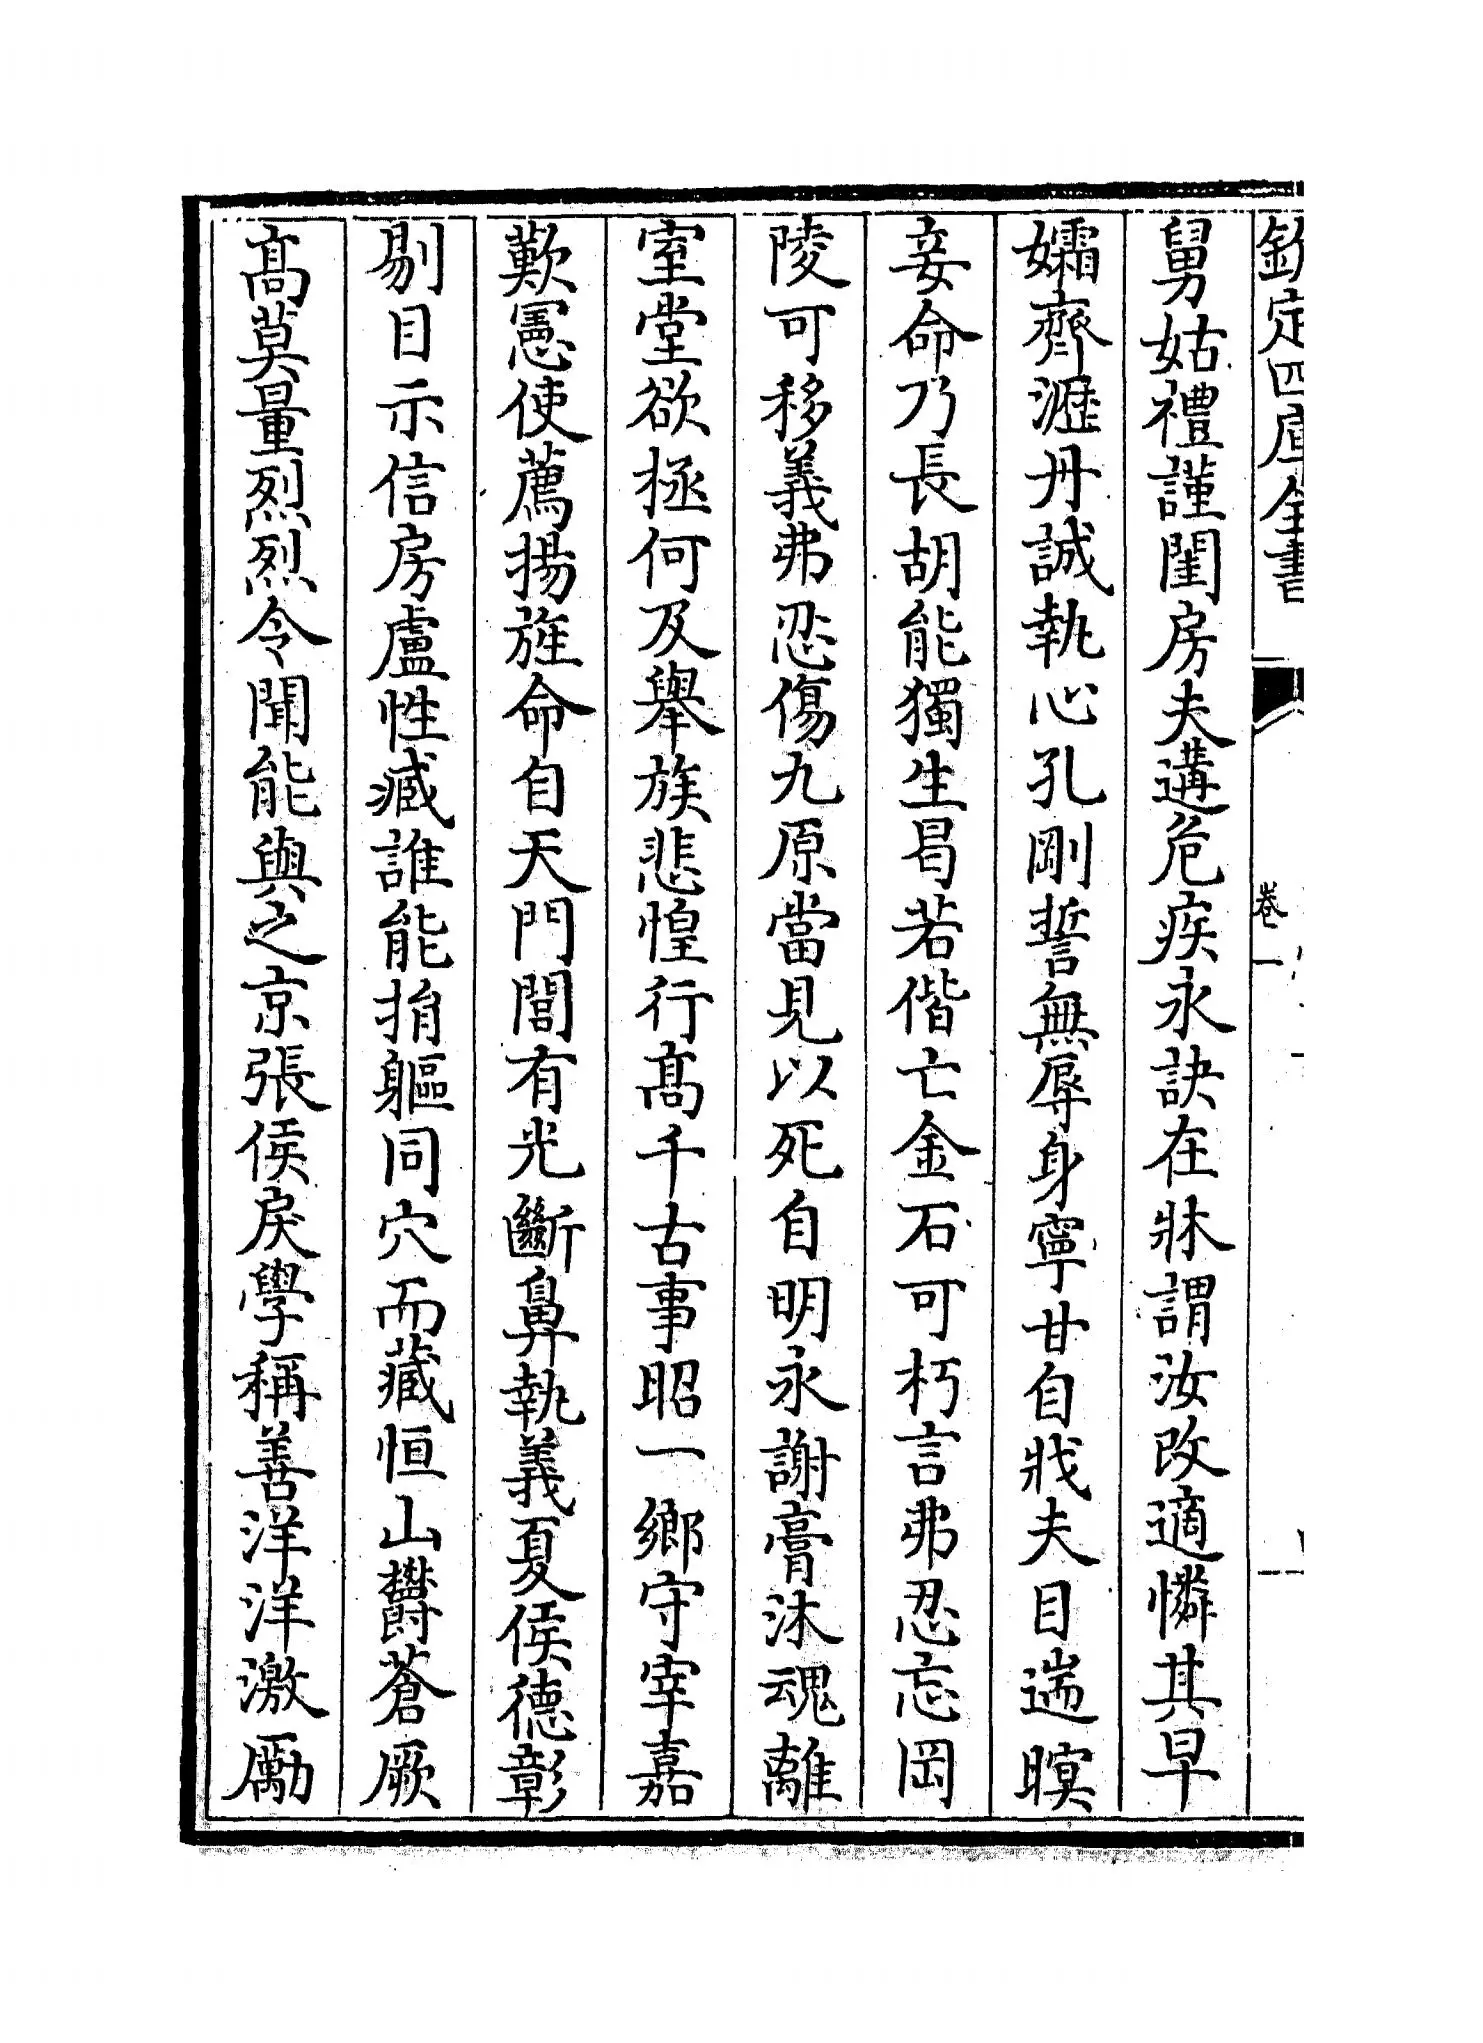 欽定四庫全書
卷一
舅姑禮謹閨房夫遘危疾永訣在牀謂汝改適憐其早
孀齊瀝丹誠執心孔剛誓無辱身寧甘自戕夫目遄瞑
妾命乃長胡能獨生曷若偕亡金石可朽言弗忍忘岡
陵可移義弗忍傷九原當見以死自明永謝膏沐魂離
室堂欲拯何及舉族悲惶行髙千古事昭一鄉守宰嘉
歎憲使薦揚旌命自天門閭有光斷鼻執義夏侯德彰
剔目示信房盧性臧誰能捐軀同穴而藏恒山欝蒼厥
髙莫量烈烈令聞能與之京張侯戾學稱善洋洋激勵